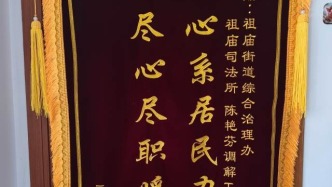 祖庙街道综合治理办
祖庙司法所 陈艳芬调解
心系居民办
尽心尽职暖